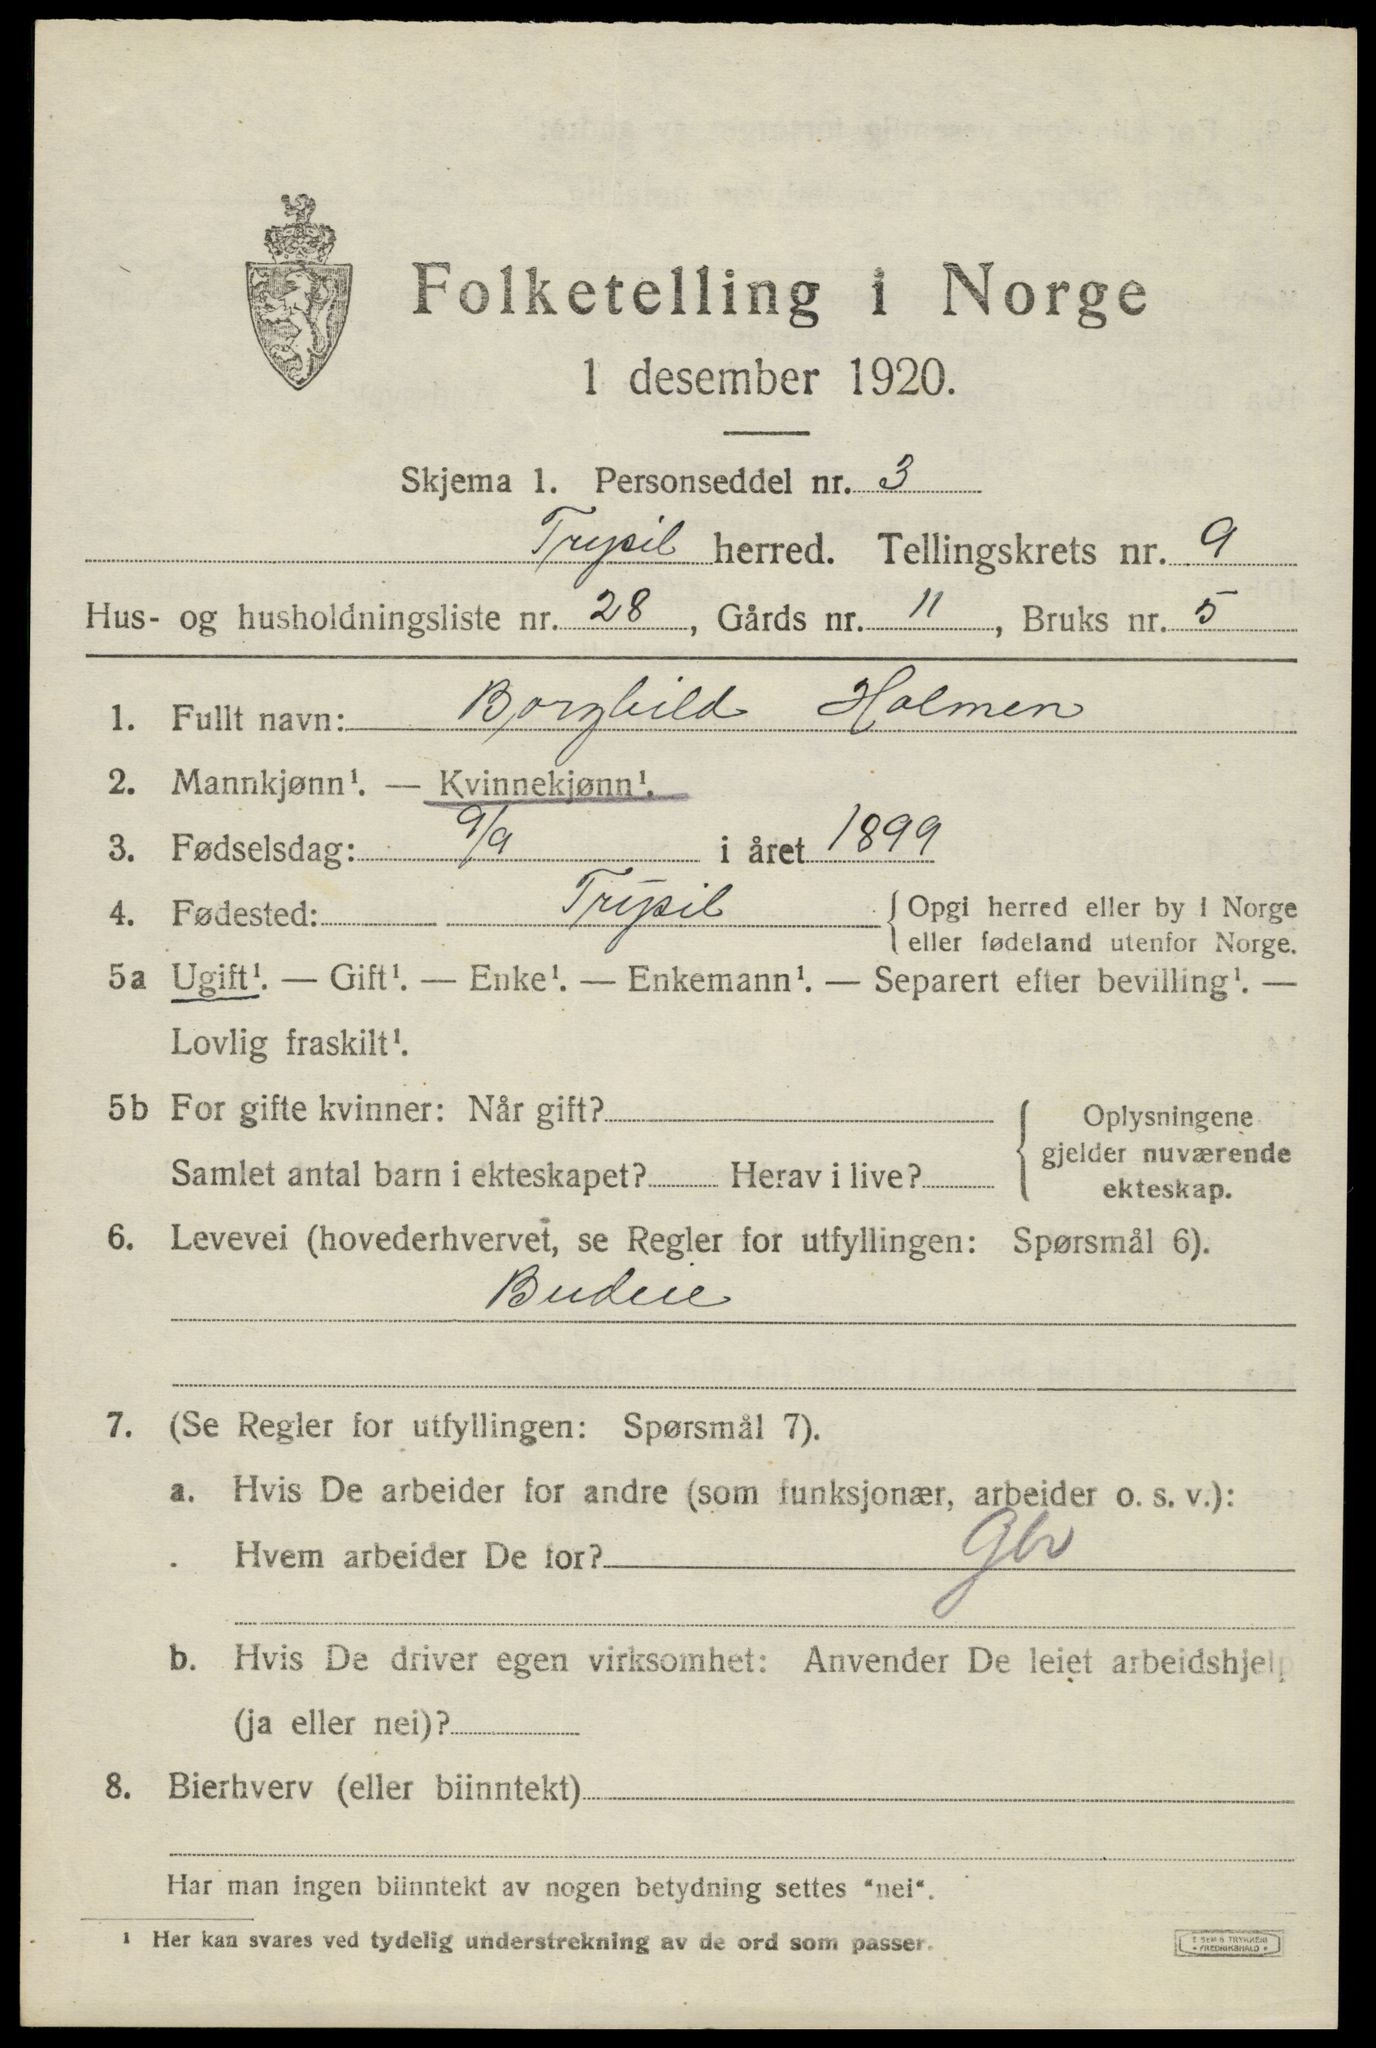 Folketelling i Norge
1 desember 1920.
Skjema 1. Personseddel nr. 3
Trysil herred. Tellingskrets nr. 9
Hus- og husholdningsliste nr. 28, Gårds nr. 11, Bruks nr. 5
1. Fullt navn: Borghild Holmen
2. Mannkjønn¹. — Kvinnekjønn¹.
3. Fødselsdag: 9/9 i året 1899
4. Fødested: Trysil {Opgi herred eller by i Norge
eller fødeland utenfor Norge.
5a Ugift¹. — Gift¹. — Enke¹. — Enkemann¹. — Separert efter bevilling¹. —
Lovlig fraskilt¹.
5b For gifte kvinner: Når gift?
Samlet antal barn i ekteskapet? Herav i live?
{Oplysningene
gjelder nuværende
ekteskap.
6. Levevei (hovederhvervet, se Regler for utfyllingen: Spørsmål 6).
Budeie
7. (Se Regler for utfyllingen: Spørsmål 7).
a. Hvis De arbeider for andre (som funksjonær, arbeider o. s. v.):
. Hvem arbeider De for? Gbr
b. Hvis De driver egen virksomhet: Anvender De leiet arbeidshjelp
(ja eller nei)?
8. Bierhverv (eller biinntekt)
Har man ingen biinntekt av nogen betydning settes "nei".
¹ Her kan svares ved tydelig understrekning av de ord som passer.
SEM & TRYKKERI
FREDRIKSHALD